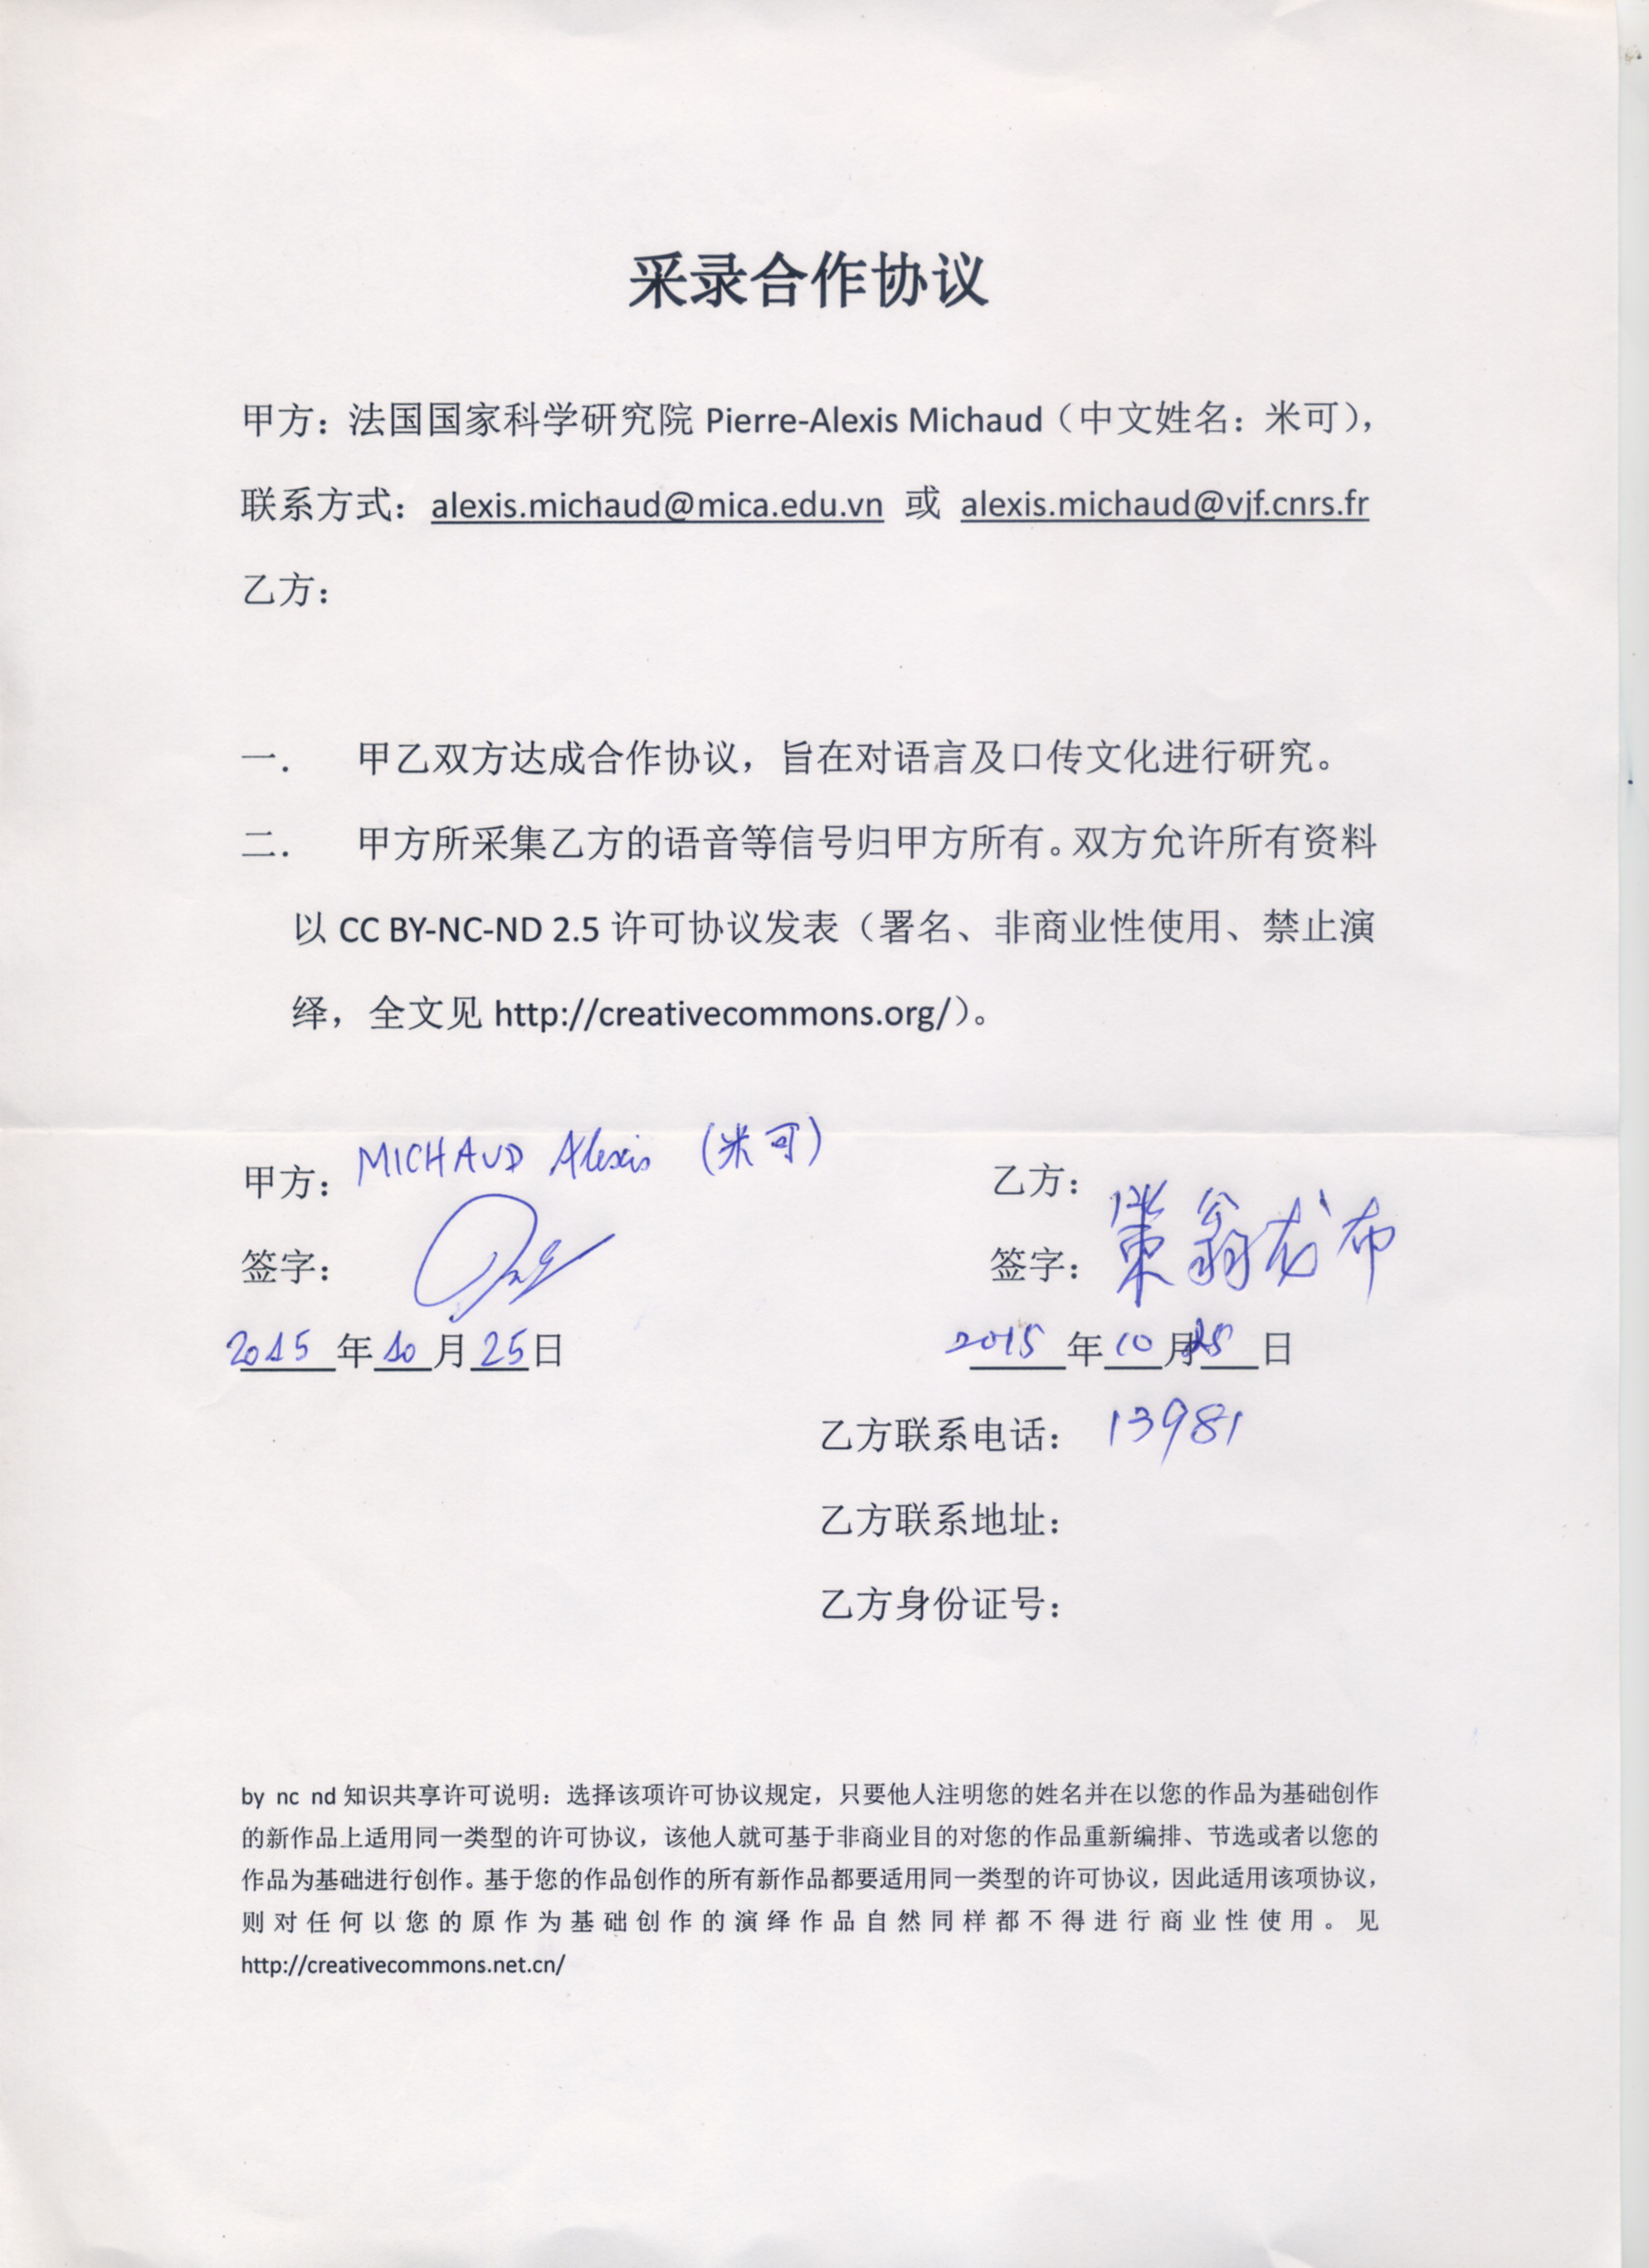 采录合作协议
甲方：法国国家科学研究院 Pierre-Alexis Michaud（中文姓名：米可），
联系方式：alexis.michaud@mica.edu.vn 或 alexis.michaud@vjf.cnrs.fr
乙方：
一． 甲乙双方达成合作协议，旨在对语言及口传文化进行研究。
二． 甲方所采集乙方的语音等信号归甲方所有。双方允许所有资料
以 CC BY-NC-ND 2.5 许可协议发表（署名、非商业性使用、禁止演
绎，全文见 http://creativecommons.org/）。
甲方： MICHAUD Alexis (米可)
乙方：
签字：
签字： 翁 布
2015 年 10 月 25 日
2015 年 10 月 25 日
乙方联系电话： 13981
乙方联系地址：
乙方身份证号：
by nc nd 知识共享许可说明：选择该项许可协议规定，只要他人注明您的姓名并在以您的作品为基础创作
的新作品上适用同一类型的许可协议，该他人就可基于非商业目的对您的作品重新编排、节选或者以您的
作品为基础进行创作。基于您的作品创作的所有新作品都要适用同一类型的许可协议，因此适用该项协议，
则对任何以您的原作为基础创作的演绎作品自然同样都不得进行商业性使用。见
http://creativecommons.net.cn/